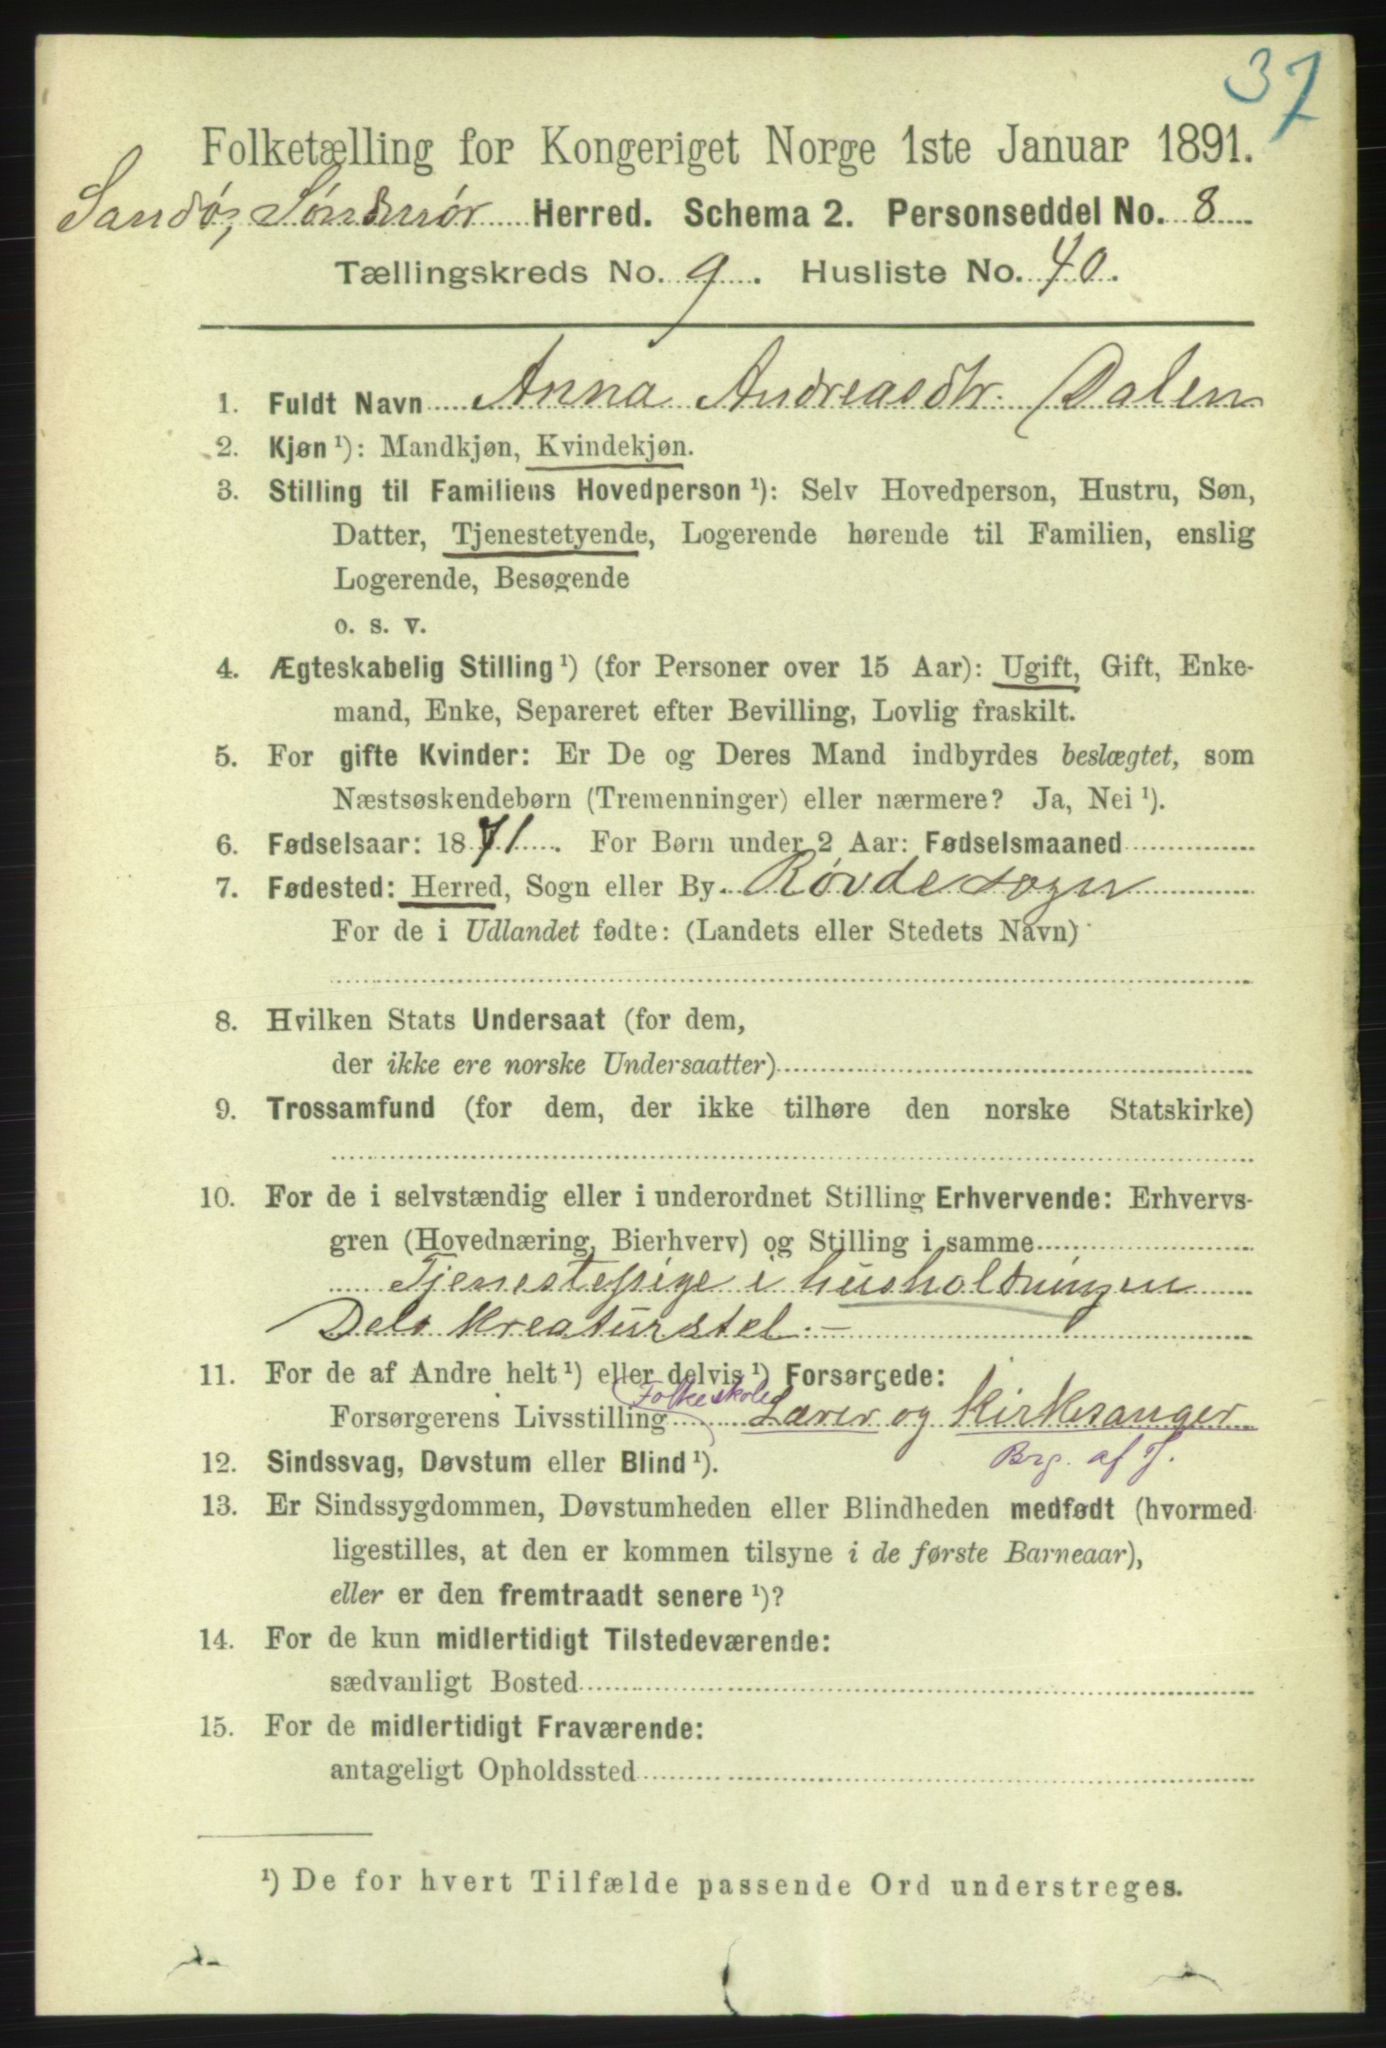 37
Folketælling for Kongeriget Norge 1ste Januar 1891.
Sandø, Søndmør Herred. Schema 2. Personseddel No. 8
Tællingskreds No. 9. Husliste No. 40.
1. Fuldt Navn Anna Andreasdtr. Dalen
2. Kjøn ¹): Mandkjøn, Kvindekjøn.
3. Stilling til Familiens Hovedperson ¹): Selv Hovedperson, Hustru, Søn,
Datter, Tjenestetyende, Logerende hørende til Familien, enslig
Logerende, Besøgende
o. s. v.
4. Ægteskabelig Stilling ¹) (for Personer over 15 Aar): Ugift, Gift, Enke-
mand, Enke, Separeret efter Bevilling, Lovlig fraskilt.
5. For gifte Kvinder: Er De og Deres Mand indbyrdes beslægtet, som
Næstsøskendebørn (Tremenninger) eller nærmere? Ja, Nei ¹).
6. Fødselsaar: 1871. For Børn under 2 Aar: Fødselsmaaned
7. Fødested: Herred, Sogn eller By Røvde sogn
For de i Udlandet fødte: (Landets eller Stedets Navn)
8. Hvilken Stats Undersaat (for dem,
der ikke ere norske Undersaatter)
9. Trossamfund (for dem, der ikke tilhøre den norske Statskirke)
10. For de i selvstændig eller i underordnet Stilling Erhvervende: Erhvervs-
gren (Hovednæring, Bierhverv) og Stilling i samme
Tjenestepige i husholdningen
Dels kreaturstel. -
11. For de af Andre helt ¹) eller delvis ¹) Forsørgede:
Folkeskole
Forsørgerens Livsstilling Lærer og Kirkesanger
12. Sindssvag, Døvstum eller Blind ¹).
Brg. af J.
13. Er Sindssygdommen, Døvstumheden eller Blindheden medfødt (hvormed
ligestilles, at den er kommen tilsyne i de første Barneaar),
eller er den fremtraadt senere ¹)?
14. For de kun midlertidigt Tilstedeværende:
sædvanligt Bosted
15. For de midlertidigt Fraværende:
antageligt Opholdssted
¹) De for hvert Tilfælde passende Ord understreges.